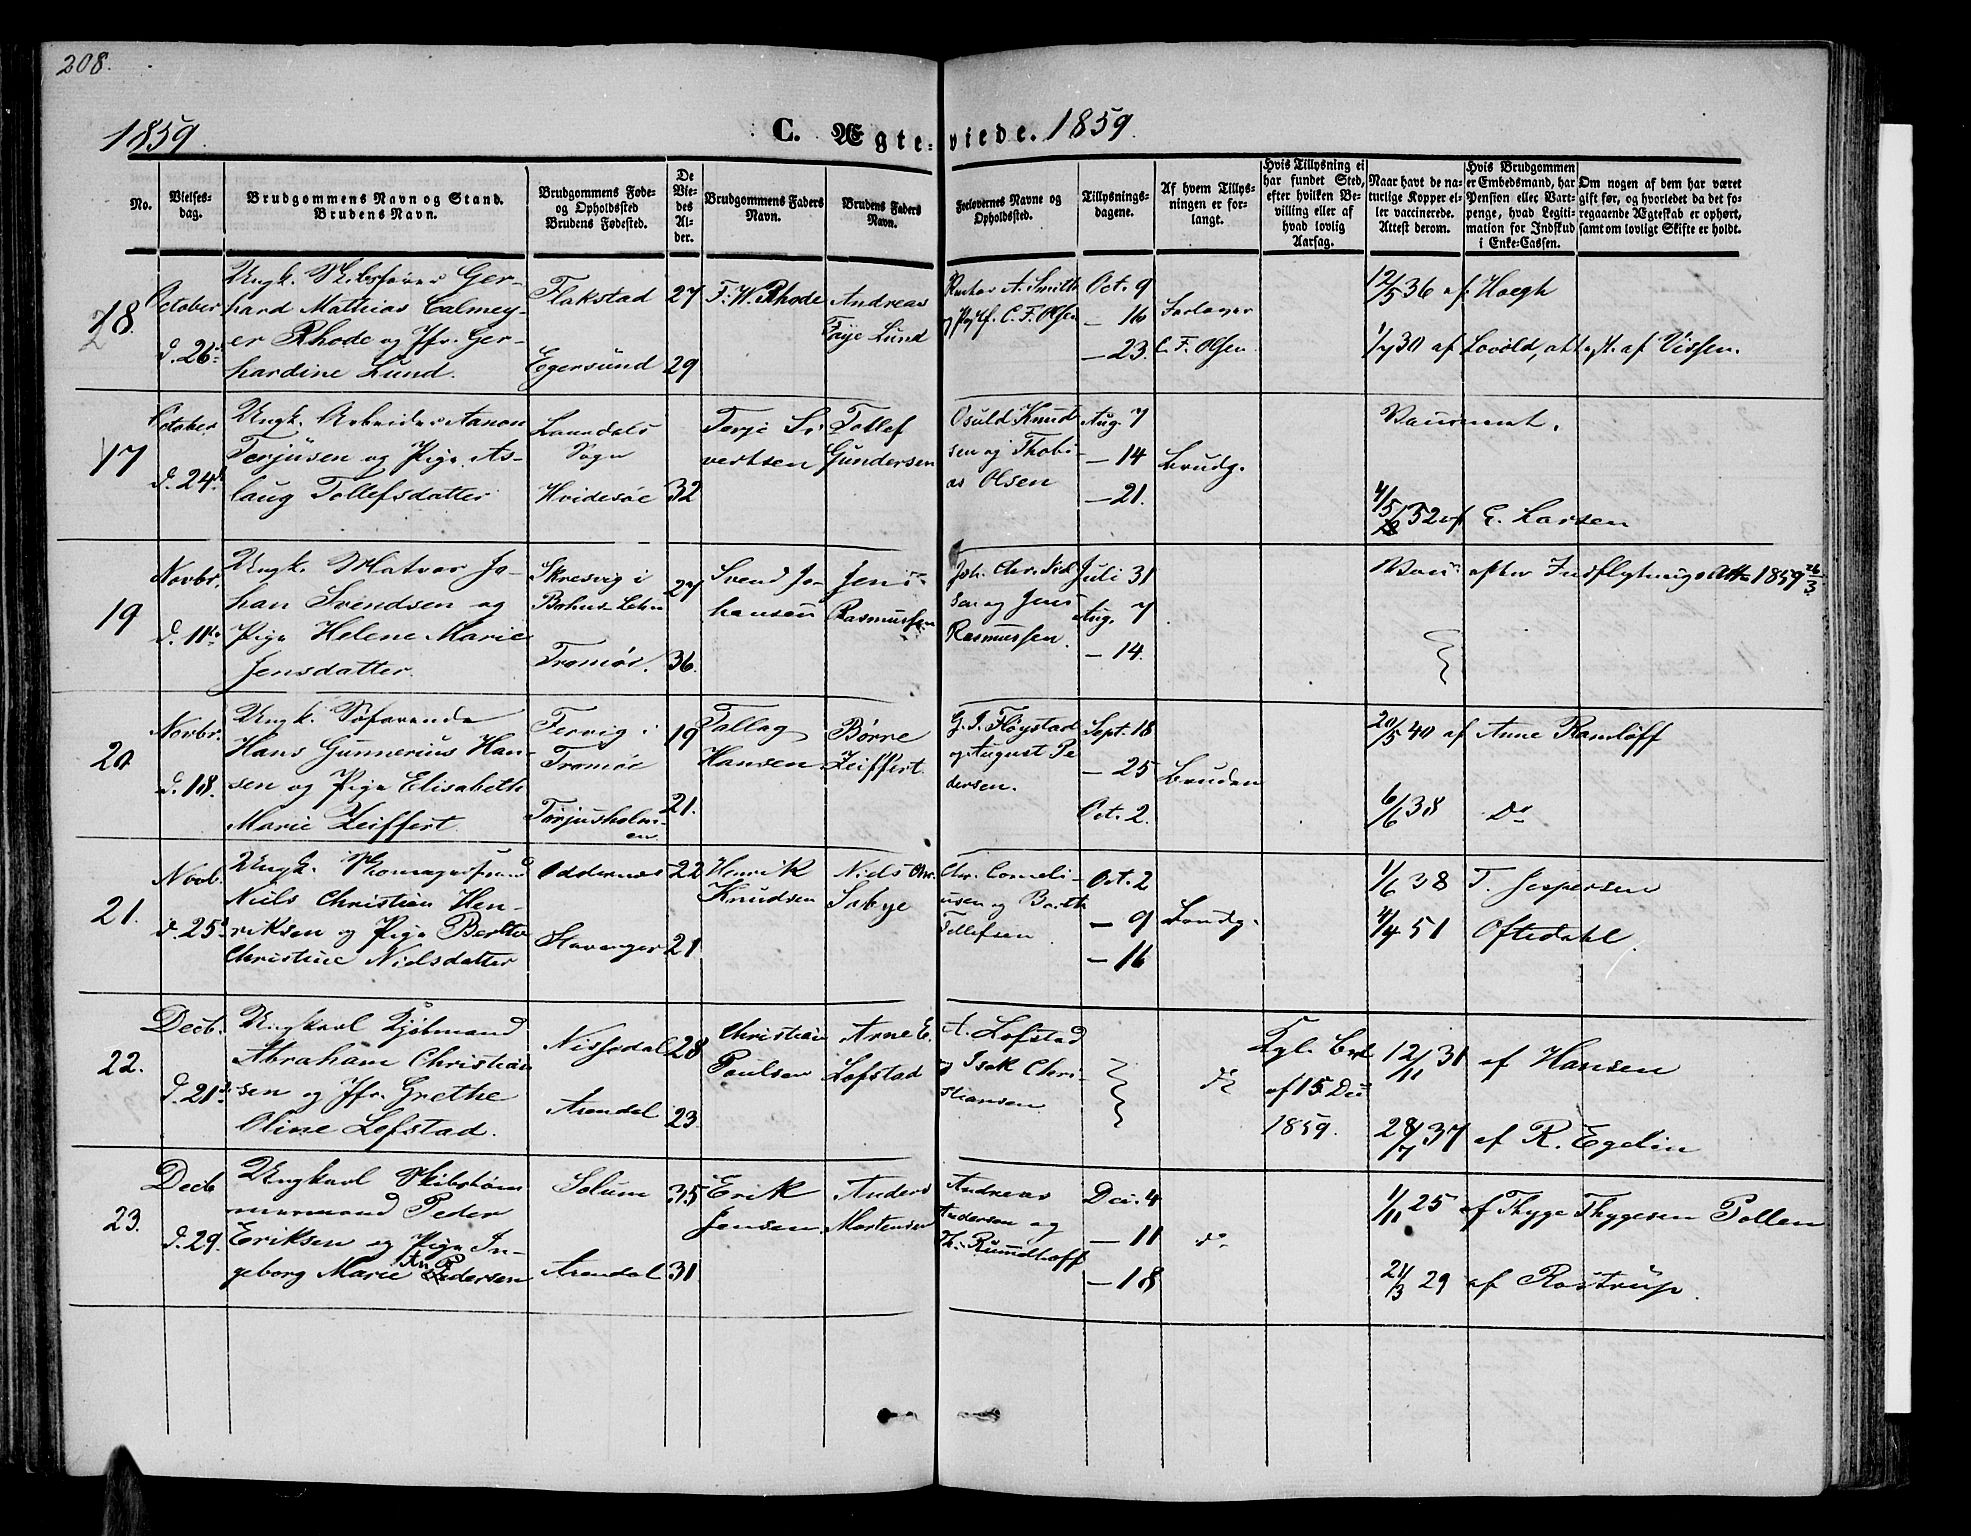 208.
1859.
C. Ægte-viede. 1859.
No.
Vielses-
dag.
Brudgommens Navn og Stand.
Brudens Navn.
Brudgommens Føde-
og Opholdssted
Brudens Fødested.
De
Vie-
des
Al-
der.
Brudgommens Faders
Navn.
Brudens Faders
Navn.
Forlovernes Navne og
Opholdssted.
Tillysnings-
dagene.
Af hvem Tillys-
ningen er for-
langt.
Hvis Tillysning ei
har fundet Sted,
efter hvilken Be-
villing eller af
hvad lovlig
Aarsag.
Naar havt de na-
turlige Kopper el-
ler vaccinerede.
Attest derom.
Hvis Brudgommen
er Embedsmand, har
Pension eller Vart-
penge, hvad Legiti-
mation for Indskud
i Enke-Cassen.
Om nogen af dem har været
gift før, og hvorledet da det fo-
regaaende Ægteskab er ophørt,
samt om lovligt Skifte er holdt.
18.
October
d. 26
Ungk. Skibsfører Ger-
hard Mathias Calmey-
er Rhode og Jfr. Ger-
hardine Lund.
Flakstad
Egersund
27
29
F. W. Rhode
Andreas
Faye Lund
A. Smith
og C. F. Olsen
Oct. 9
— 16
— 23.
Forlover
C. F. Olsen.
12/5 36 af Høegh
1/7 30 af Lovold, attest. af Vissen.
17
October
d. 24.
Ungk. Arbeider Aanon
Terjusen og Pige As-
laug Tollefsdatter
Laurdals
Sogn
Hvidesøe
32
Terje Si
vertsen
Tollef
Gundersen
Osuld Knud
sen og Thobi-
as Olsen
Aug. 7
— 14
— 21.
Brudg.
4/5 32 af E. Larsen
19
Novbr.
d. 11
Ungk. Matros Jo-
han Svendsen og
Pige Helene Marie
Jensdatter.
Skresvig i
Bahus Lehn
Tromøe.
27
36.
Svend Jo-
hansen
Jens
Rasmussen
Joh. Chr. Niel
sen og Jens
Rasmussen.
Juli 31
Aug. 7
— 14.
Vacc. efter Indflytnings Att. 1859 26/3
20
Novbr.
d. 18.
Ungk. Søfarende
Hans Gunnerius Han-
sen og Pige Elisabeth
Marie Zeiffert.
Tervig i
Tromøe
Torjusholm-
en
19
21.
Tallag
Hansen
Børre
Zeiffert.
G. I. Fløystad
og August Pe
dersen.
Sept. 18
— 25
Oct. 2.
Bruden
20/5 40 af Anne Ramløff
6/6 38 Do
21.
Novb.
d. 25
Ungk.
Niels Christian Hen-
riksen og Pige Berthe
Christine Nielsdatter
Oddernæs
Stavanger
22
21
Henrik
Knudsen
Niels Chr.
Sabye
Chr. Corneli-
usen og Barth
Tollefsen
Oct. 2
— 9
— 16
Brudg.
1/6 38 T. Jespersen
4/4 51 Oftedahl.
22.
Decb.
d. 21
Ungkarl Kjøbmand
Abraham Christian
sen og Jfr. Grethe
Oline Lofstad.
Nissedal
Arendal
28
23.
Christian
Paulsen
Arne E.
Lofstad
A. Lofstad
og Isak Chri-
stiansen
do
Kgl. Bev.
af 15 Dec
1859.
12/11 31 af Hansen
28/7 37 af R. Egelin
23.
Decb
d. 29.
Ungkarl Skibstøm
mermand Peder
Eriksen og Pige In-
geborg Marie An. Pedersen
Solum
Arendal
35
31
Erik
Jensen
Anders
Mortensen
Andreas
Andersen og
Th. Rumelhoff
Dec. 4
— 11
— 18
do
1/11 25 af Thyge Thygesen Pollen
21/3 29 af Rostrup.